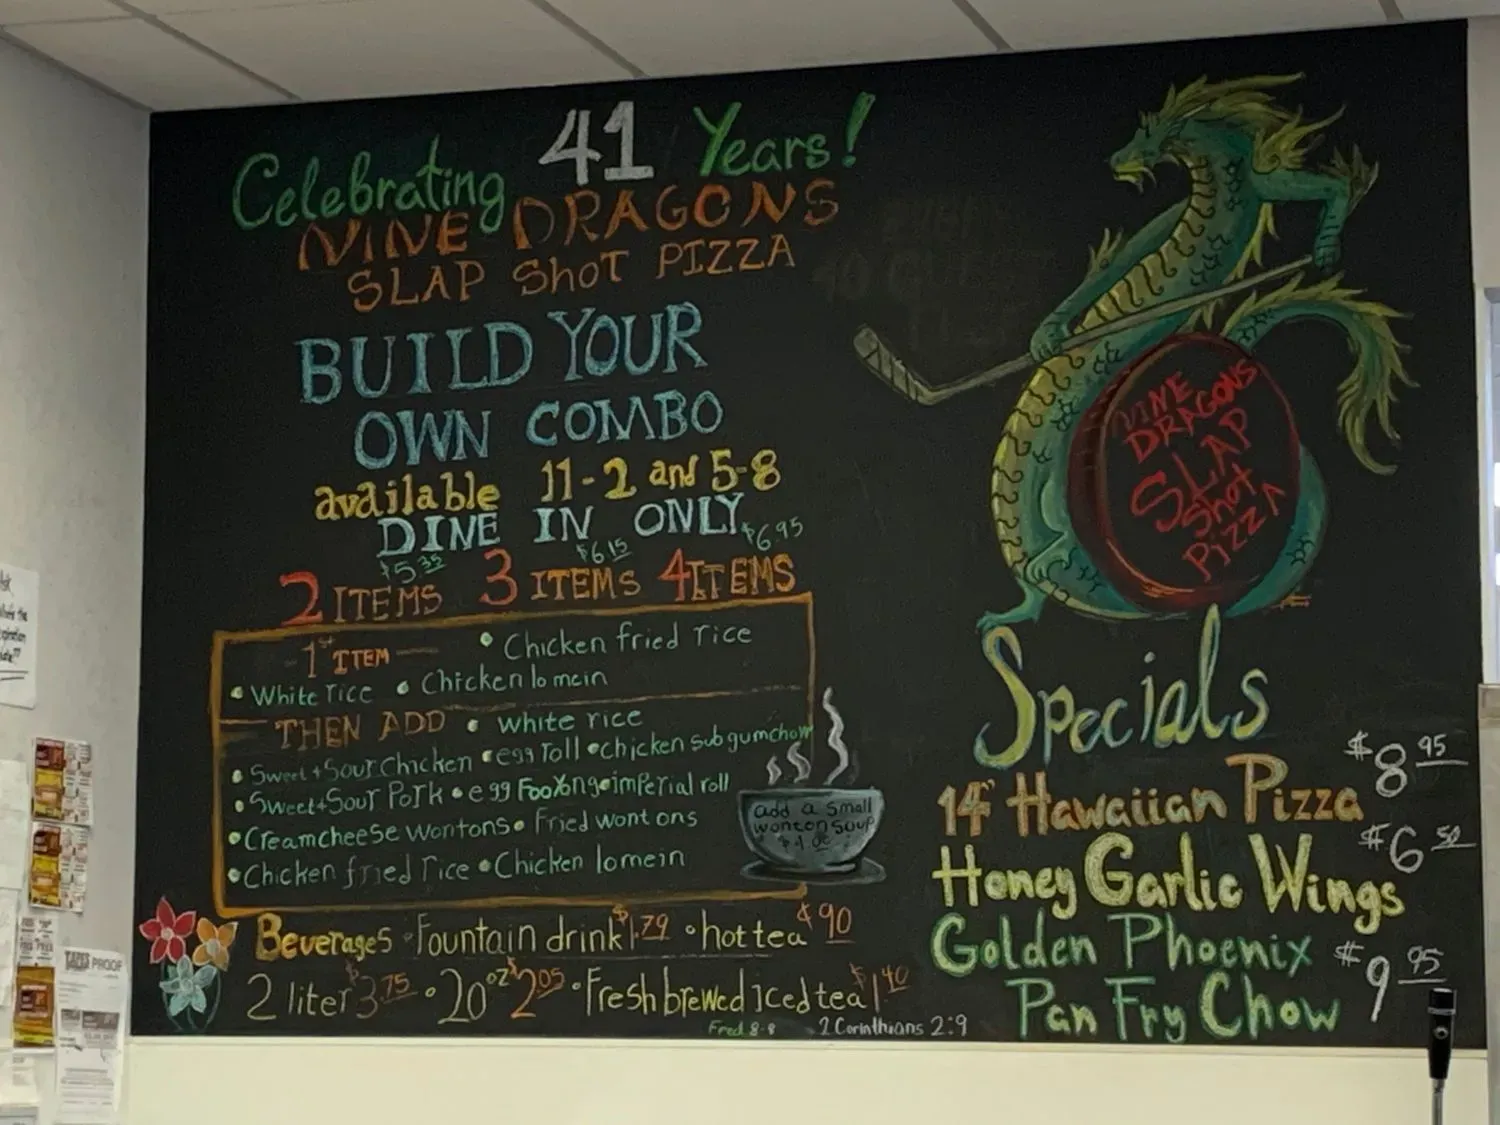 Celebrating 41 Years!
NINE DRAGONS
SLAP SHOT PIZZA
BUILD YOUR
OWN COMBO
available 11-2 and 5-8
DINE IN ONLY
$5.35 $6.15 $6.95
2 ITEMS 3 ITEMS 4 ITEMS
1st ITEM • Chicken fried rice
• White rice • Chicken lo mein
THEN ADD • white rice
• Sweet + Sour Chicken • egg roll • chicken sub gum chow
• Sweet + Sour Pork • egg Foo Yong • imperial roll
• Creamcheese wontons • Fried wontons
• Chicken fried rice • Chicken lo mein
add a small
wonton soup
Beverages • Fountain drink $1.79 • hot tea ¢90
2 liter $3.75 • 20 oz $2.05 • Fresh brewed iced tea $1.40
2 Corinthians 2:9
NINE
DRAGONS
SLAP
Shot
Pizza
Specials
14" Hawaiian Pizza $8.95
Honey Garlic Wings $6.50
Golden Phoenix
Pan Fry Chow $9.95
PROOF